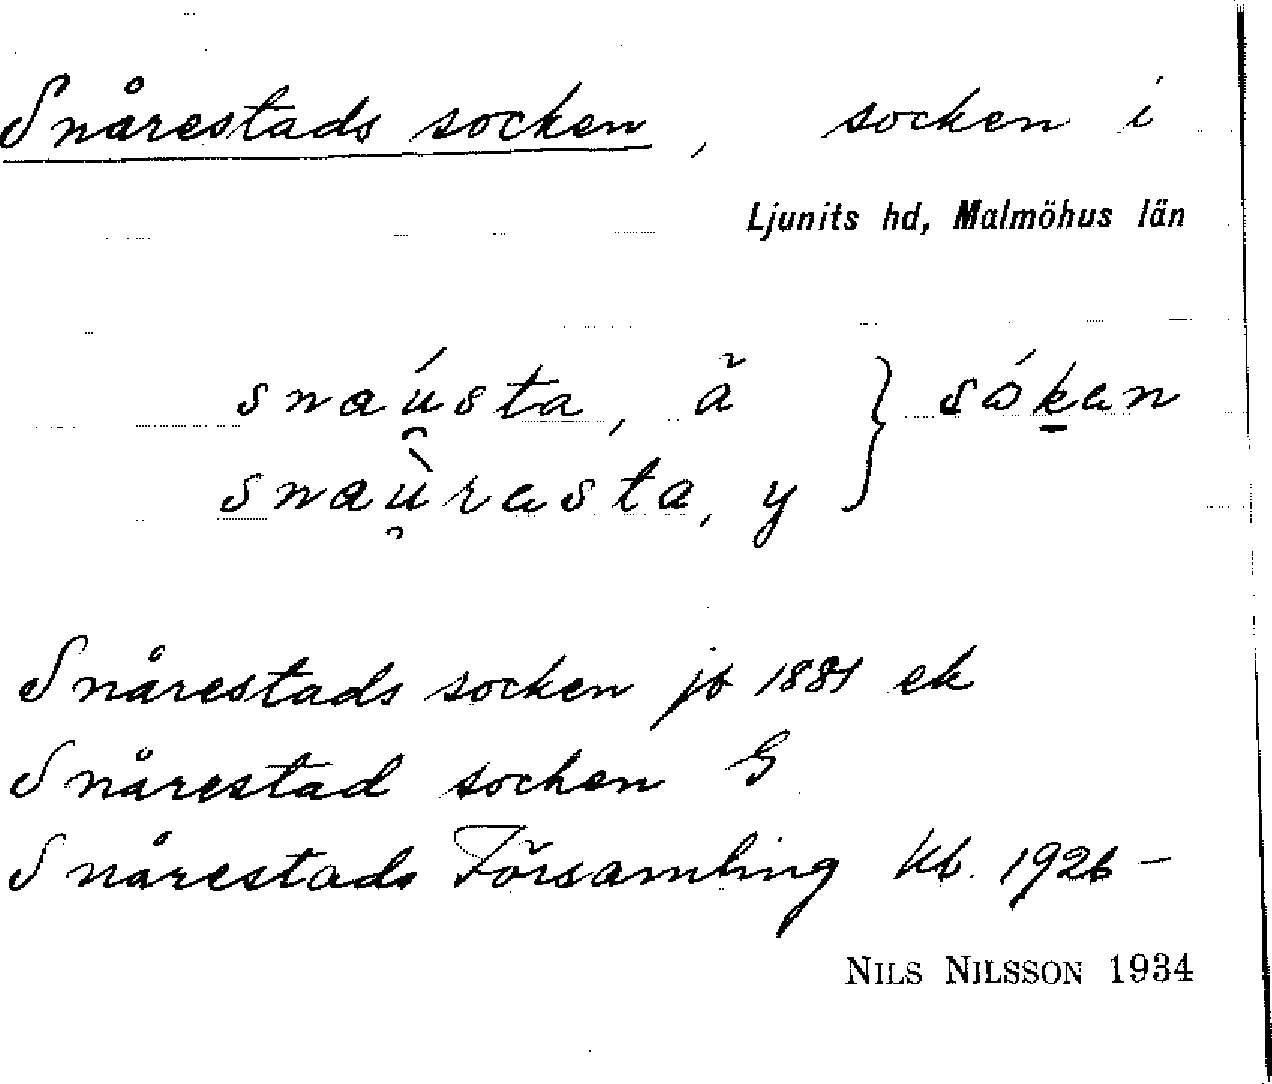 Snårestads socken, socken i
Ljunits hd, Malmöhus län
snaústa, ä } sókan
snaùrasta, y
Snårestads socken jb 1881 ek
Snårestad socken G
Snårestads Församling Kb. 1926 –
NILS NILSSON 1934